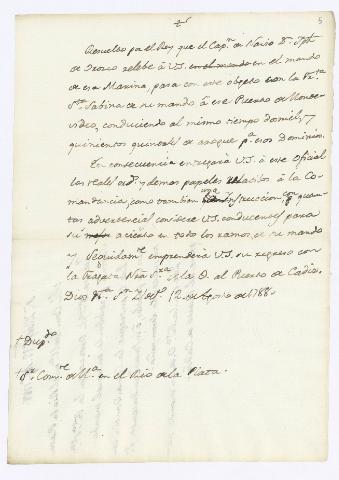 5
Resuelto por el Rey que el Cap.n de Navio D.n Jph
de Orozco releve à V.S. en el mando
de esa Marina, pasa con este objeto con la Fr.ta
S.ta Sabina de su mando à ese Puerto de Monte-
video, conduciendo al mismo tiempo dos mil, y
quinientos quintales de azogue p.a esos Dominios.
En consecuencia entregará V.S. à este oficial
las reales ord.s y demas papeles relatibos à la Co-
mandancia, como tambien una Instruccion con quan-
tas advertencias considere V.S. conducentes para
su acierto en todo los ramos de su mando
y seguidam.te emprenderá V.S. su regreso con
la Fragata Nra Sra de la O. al Puerto de Cadiz.
Dios 12 de Agosto de 178
+ Dup.do
+ S.or Com.te de M.a en el Rio de la Plata.